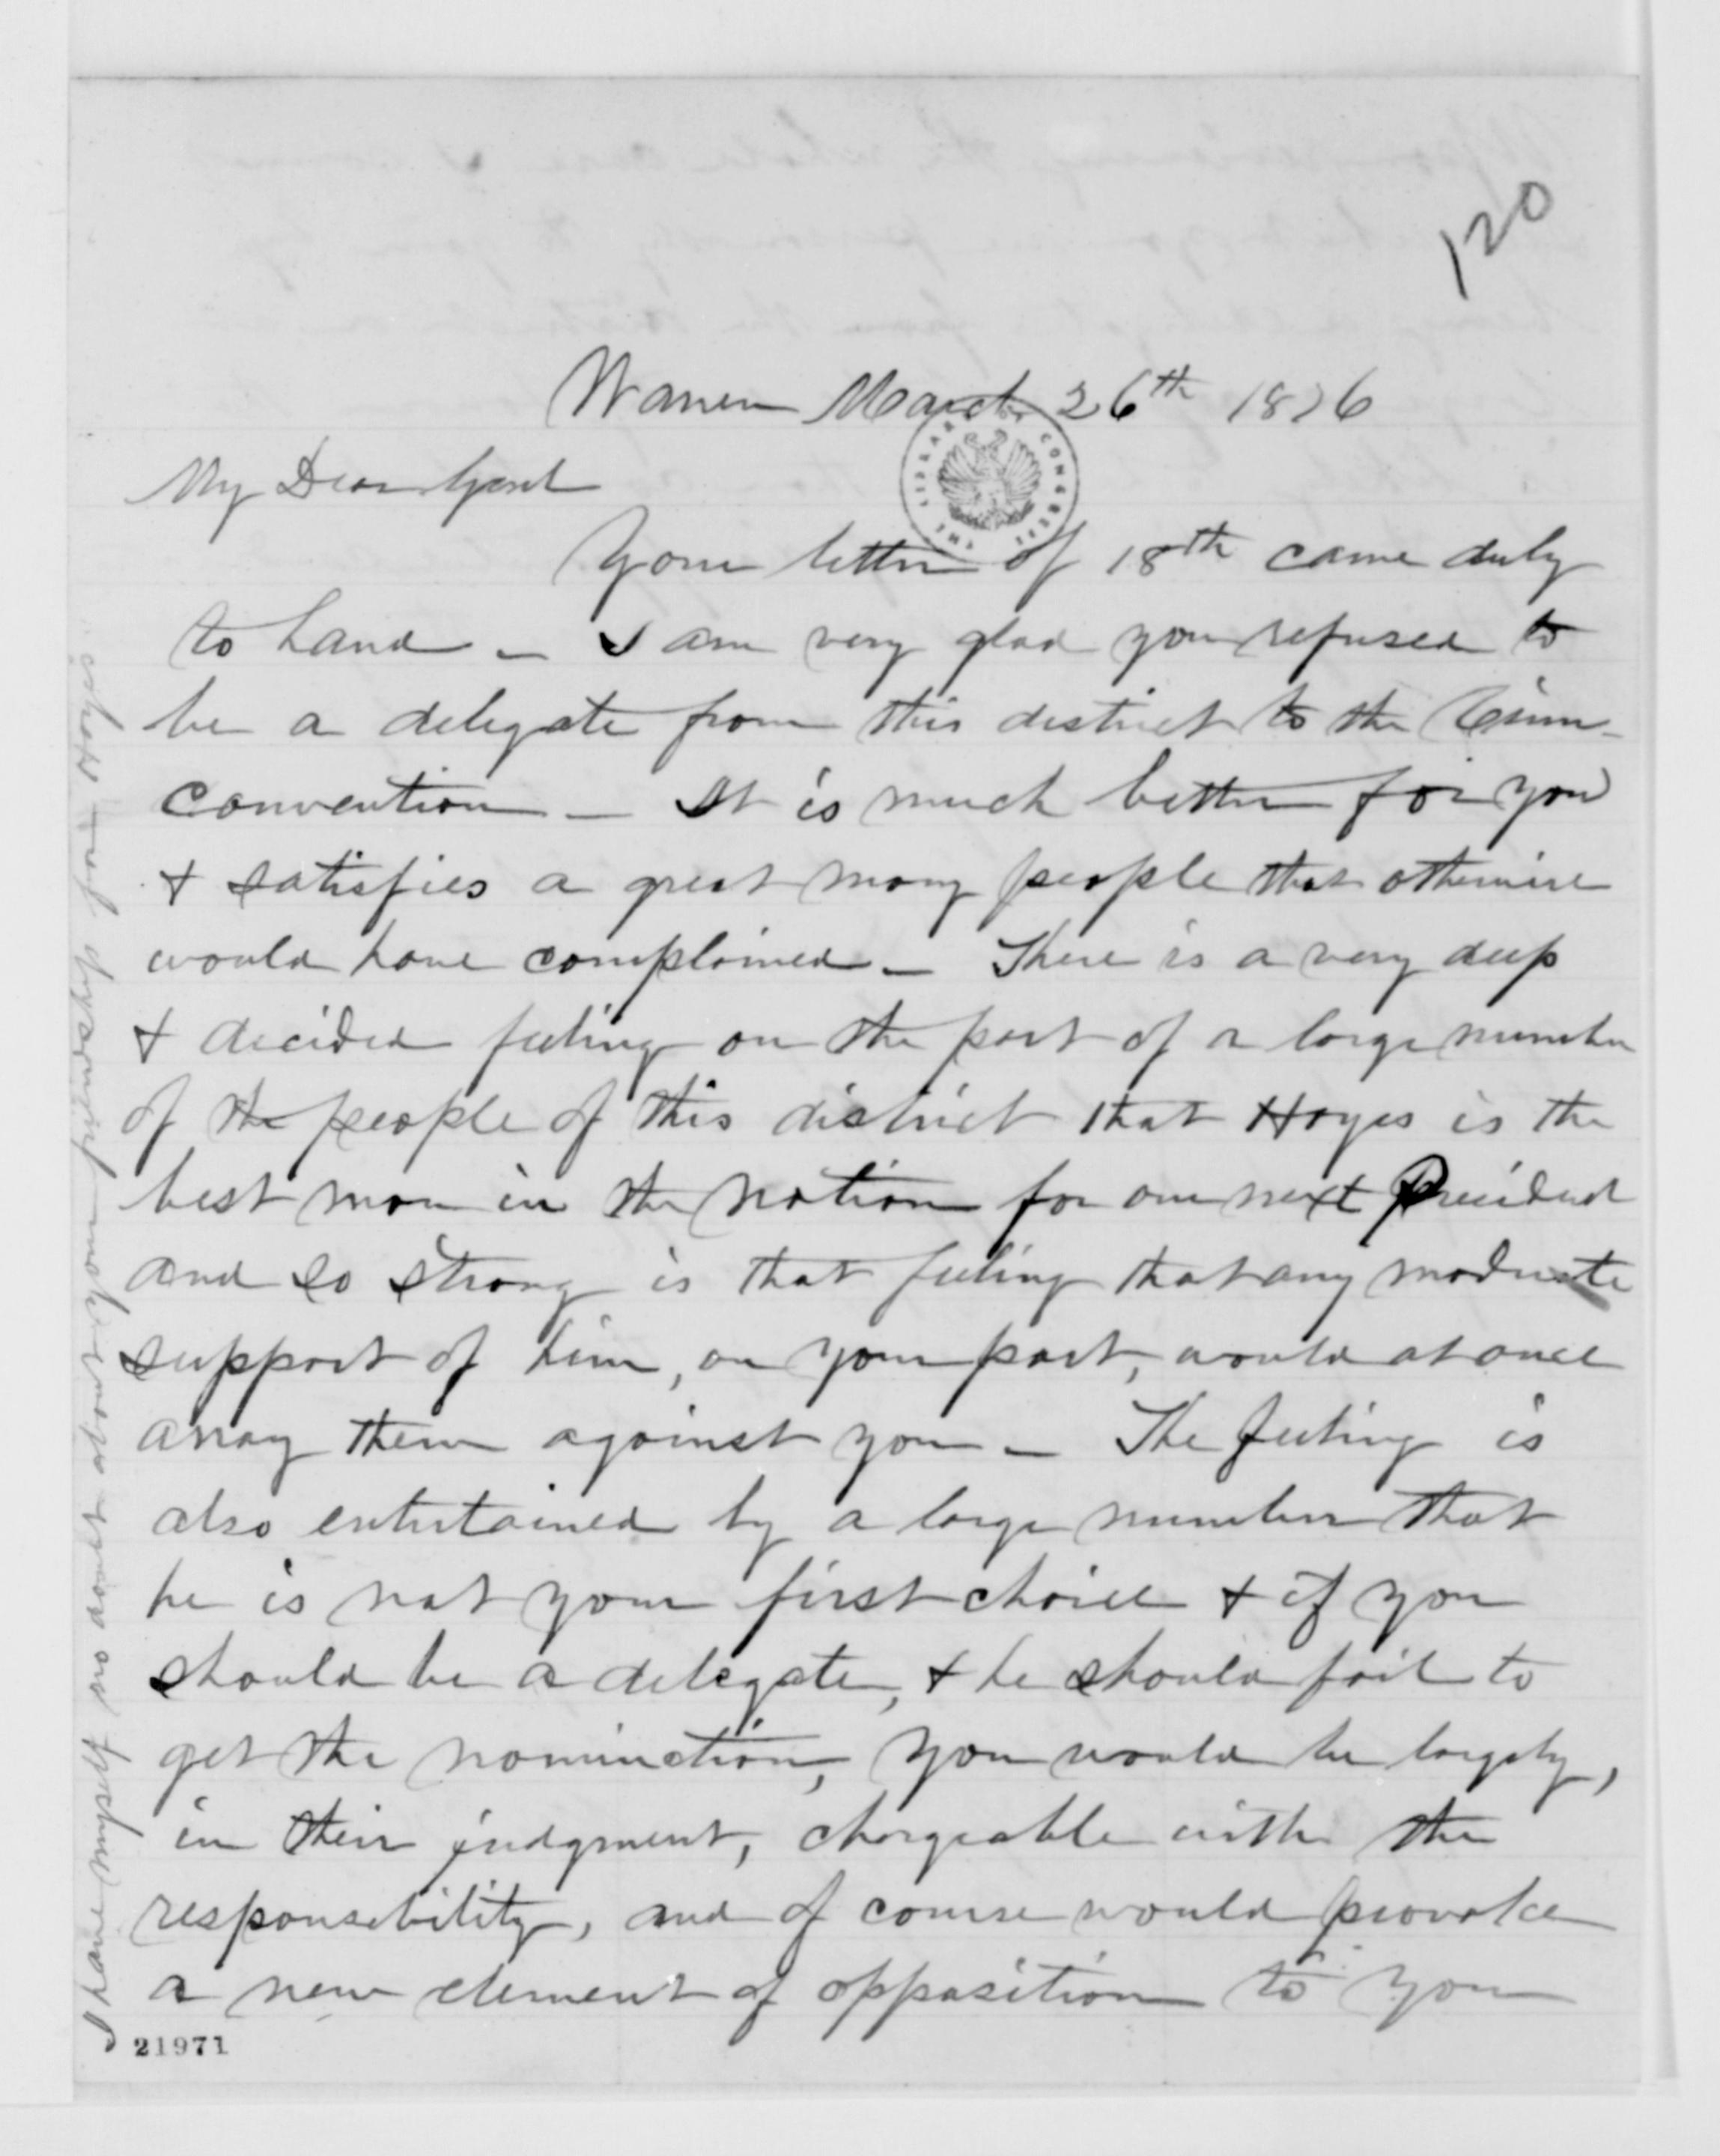 120
Warren March 26th 1876
My Dear Genl
Your letter of 18th came duly
to hand – I am very glad you refused to
be a delegate from this district to the Cinn–
convention – It is much better for you
& satisfies a great many people that otherwise
would have complained – There is a very deep
& decided feeling on the part of a large number
of the people of this district that Hayes is the
best man in the nation for our next President
and so strong is that feeling that any moderate
support of him, on your part, would at once
array them against you – The feeling is
also entertained by a large number that
he is not your first choice & if you
should be a delegate, & he should fail to
get the nomination, you would be largely,
in their judgment, chargeable with the
responsibility, and of course would provoke
a new element of opposition to you
21971
I have myself no doubt about your friendship for Hayes
THE LIBRARY OF CONGRESS